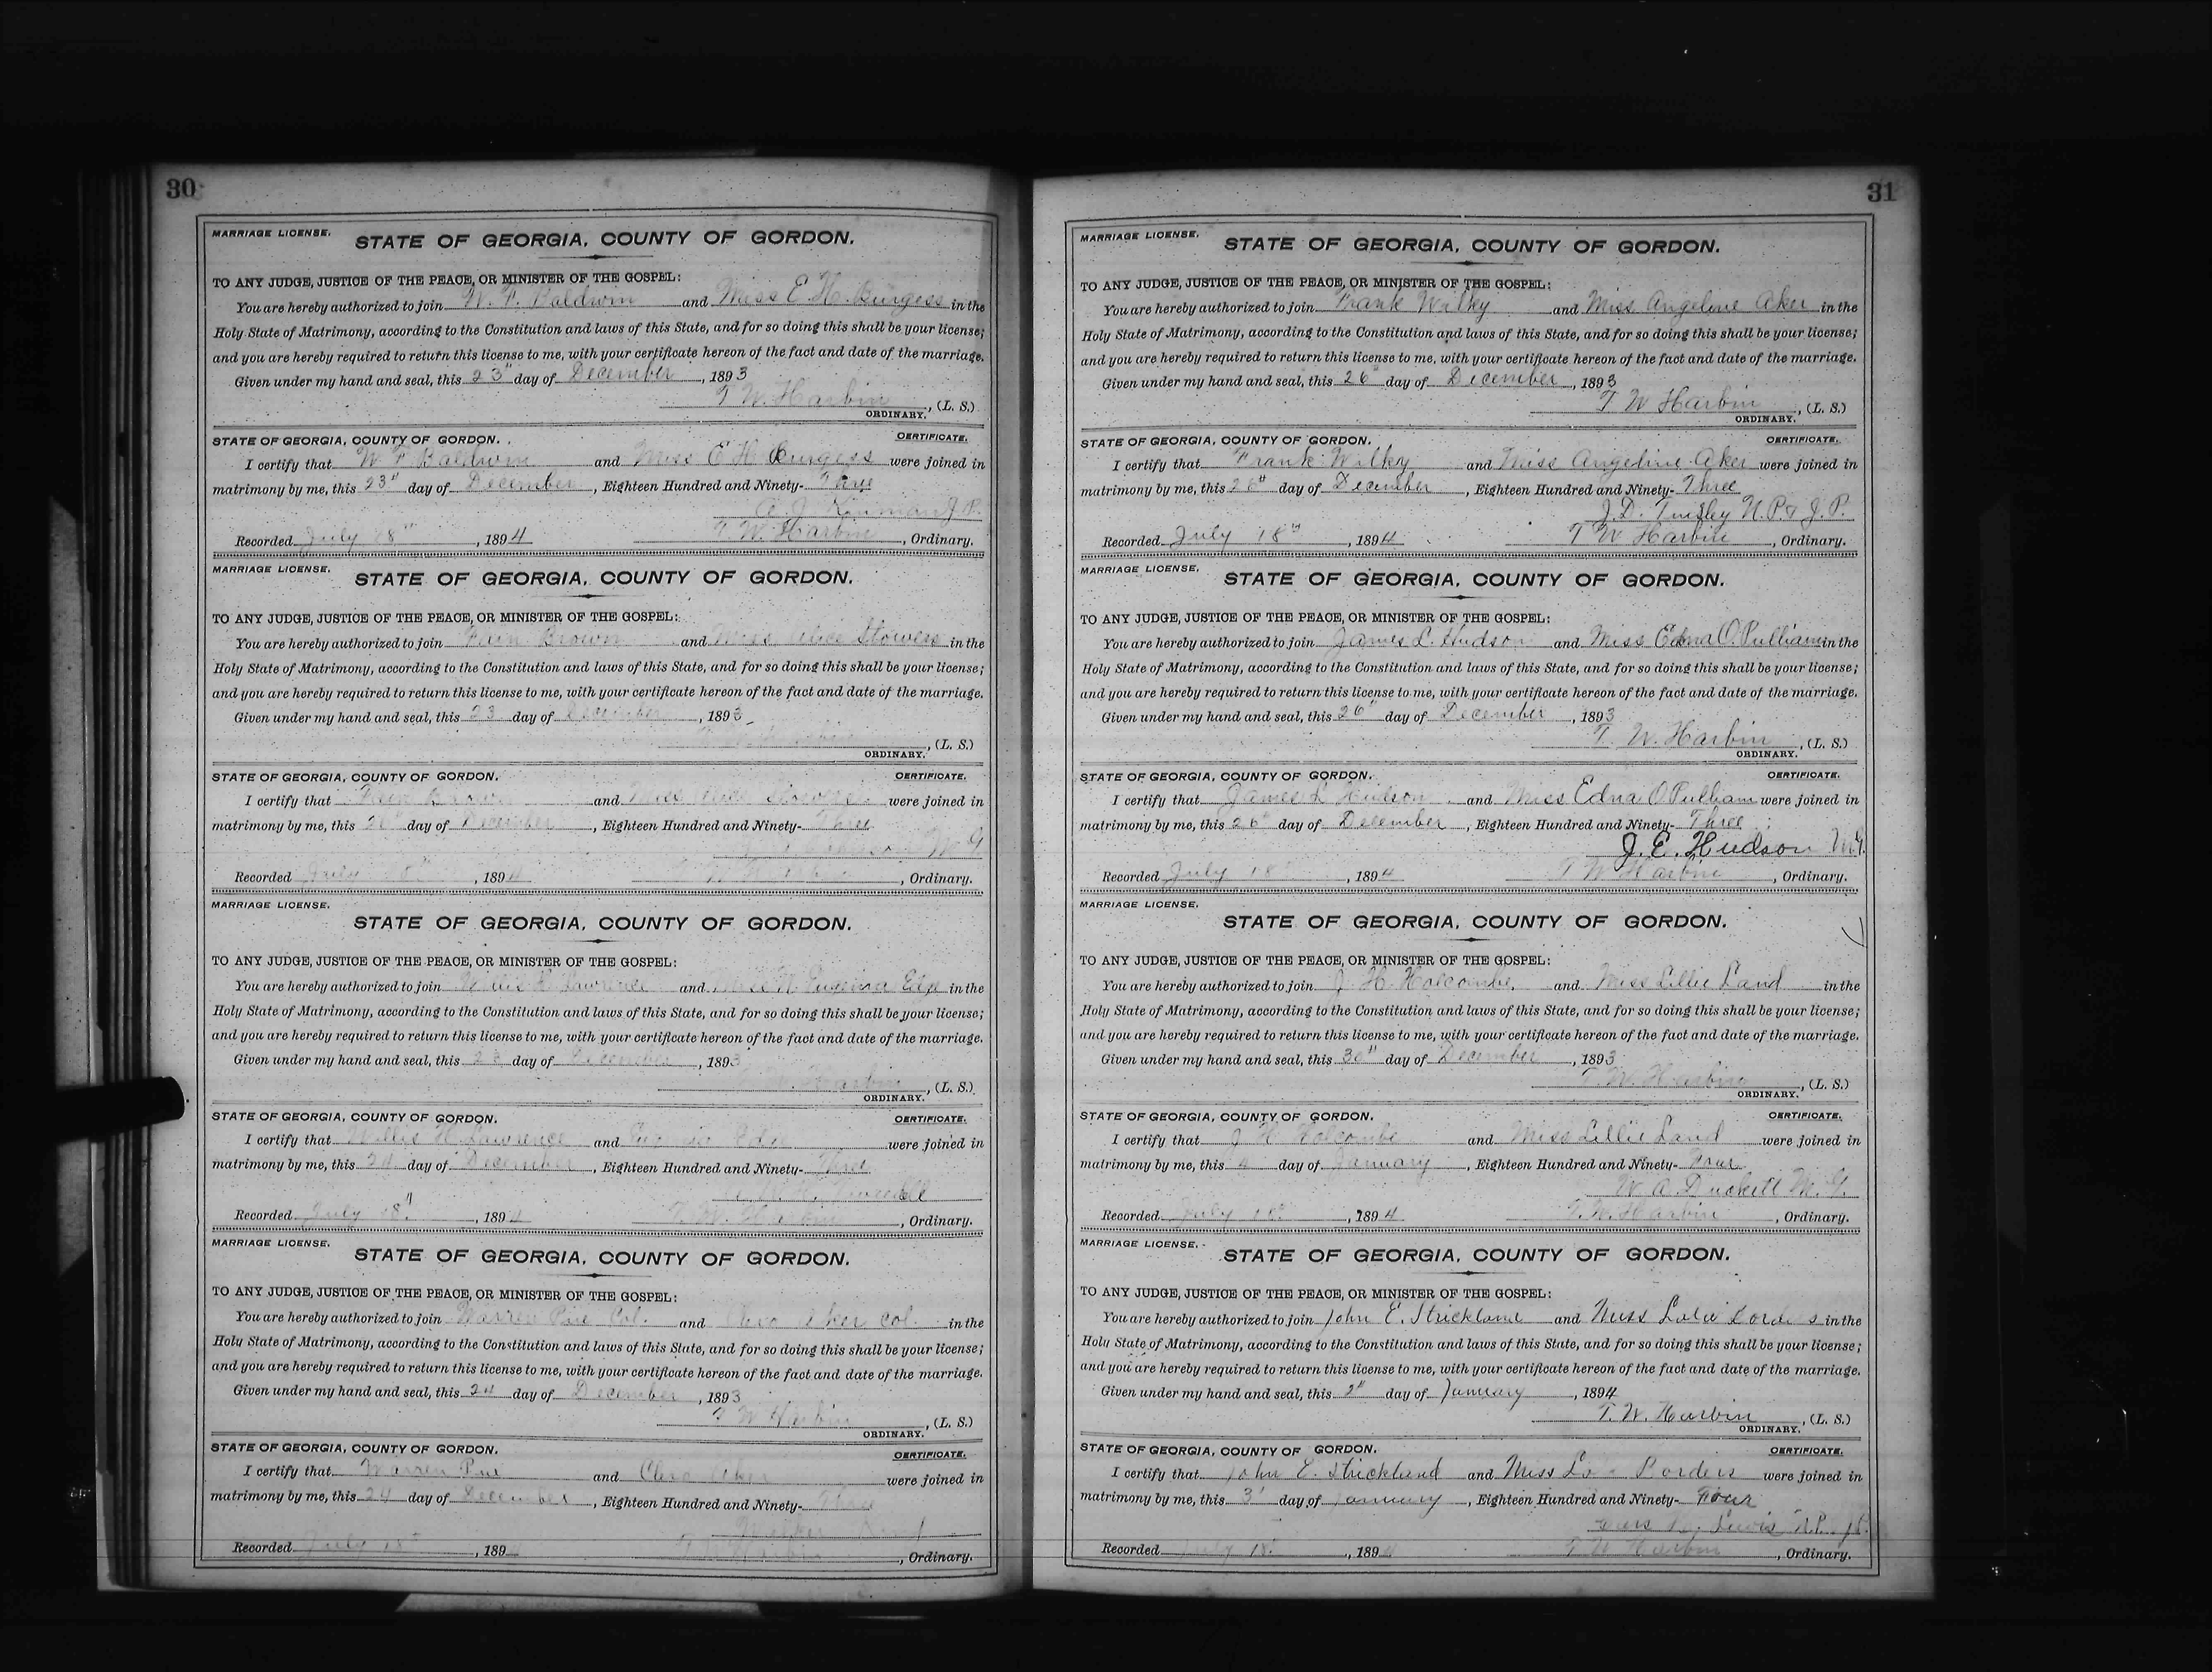 30
MARRIAGE LICENSE.
STATE OF GEORGIA, COUNTY OF GORDON.
TO ANY JUDGE, JUSTICE OF THE PEACE, OR MINISTER OF THE GOSPEL:
You are hereby authorized to join W. F. Baldwin and Miss E. H. Burgess in the
Holy State of Matrimony, according to the Constitution and laws of this State, and for so doing this shall be your license;
and you are hereby required to return this license to me, with your certificate hereon of the fact and date of the marriage.
Given under my hand and seal, this 23" day of December, 1893
T. W. Harbin, (L. S.)
ORDINARY.
STATE OF GEORGIA, COUNTY OF GORDON. CERTIFICATE.
I certify that W. F. Baldwin and Miss E H Burgess were joined in
matrimony by me, this 23" day of December, Eighteen Hundred and Ninety- Three
J. Kinman J. P.
Recorded July 18th, 1894 T. W. Harbin, Ordinary.
MARRIAGE LICENSE.
STATE OF GEORGIA, COUNTY OF GORDON.
TO ANY JUDGE, JUSTICE OF THE PEACE, OR MINISTER OF THE GOSPEL:
You are hereby authorized to join Brown and Miss Stowers in the
Holy State of Matrimony, according to the Constitution and laws of this State, and for so doing this shall be your license;
and you are hereby required to return this license to me, with your certificate hereon of the fact and date of the marriage.
Given under my hand and seal, this 23 day of December, 1893
, (L. S.)
ORDINARY.
STATE OF GEORGIA, COUNTY OF GORDON. CERTIFICATE.
I certify that Brown and Miss were joined in
matrimony by me, this day of December, Eighteen Hundred and Ninety- Three
M G
Recorded July, 1894, Ordinary.
MARRIAGE LICENSE.
STATE OF GEORGIA, COUNTY OF GORDON.
TO ANY JUDGE, JUSTICE OF THE PEACE, OR MINISTER OF THE GOSPEL:
You are hereby authorized to join Willis H. Lawrence and Miss in the
Holy State of Matrimony, according to the Constitution and laws of this State, and for so doing this shall be your license;
and you are hereby required to return this license to me, with your certificate hereon of the fact and date of the marriage.
Given under my hand and seal, this 23 day of December, 1893
W. Harbin, (L. S.)
ORDINARY.
STATE OF GEORGIA, COUNTY OF GORDON. CERTIFICATE.
I certify that Willis H. Lawrence and were joined in
matrimony by me, this 24 day of December, Eighteen Hundred and Ninety- Three
Recorded July 18", 1894 T. W. Harbin, Ordinary.
MARRIAGE LICENSE.
STATE OF GEORGIA, COUNTY OF GORDON.
TO ANY JUDGE, JUSTICE OF THE PEACE, OR MINISTER OF THE GOSPEL:
You are hereby authorized to join Warren Col. and col. in the
Holy State of Matrimony, according to the Constitution and laws of this State, and for so doing this shall be your license;
and you are hereby required to return this license to me, with your certificate hereon of the fact and date of the marriage.
Given under my hand and seal, this 24 day of December, 1893
T W Harbin, (L. S.)
ORDINARY.
STATE OF GEORGIA, COUNTY OF GORDON. CERTIFICATE.
I certify that Warren and were joined in
matrimony by me, this 24 day of December, Eighteen Hundred and Ninety-
Recorded July 18, 189 Harbin, Ordinary.
31
MARRIAGE LICENSE.
STATE OF GEORGIA, COUNTY OF GORDON.
TO ANY JUDGE, JUSTICE OF THE PEACE, OR MINISTER OF THE GOSPEL:
You are hereby authorized to join Frank Wilky and Miss Angeline Aker in the
Holy State of Matrimony, according to the Constitution and laws of this State, and for so doing this shall be your license;
and you are hereby required to return this license to me, with your certificate hereon of the fact and date of the marriage.
Given under my hand and seal, this 26" day of December, 1893
T. W Harbin, (L. S.)
ORDINARY.
STATE OF GEORGIA, COUNTY OF GORDON. CERTIFICATE.
I certify that Frank Wilky and Miss Angeline Aker were joined in
matrimony by me, this 26" day of December, Eighteen Hundred and Ninety- Three
J. D. Tinsley N. P. & J. P.
Recorded July 18th, 1894 T W Harbin, Ordinary.
MARRIAGE LICENSE.
STATE OF GEORGIA, COUNTY OF GORDON.
TO ANY JUDGE, JUSTICE OF THE PEACE, OR MINISTER OF THE GOSPEL:
You are hereby authorized to join James L. Hudson and Miss Edna O. Pulliam in the
Holy State of Matrimony, according to the Constitution and laws of this State, and for so doing this shall be your license;
and you are hereby required to return this license to me, with your certificate hereon of the fact and date of the marriage.
Given under my hand and seal, this 26" day of December, 1893
T. W. Harbin, (L. S.)
ORDINARY.
STATE OF GEORGIA, COUNTY OF GORDON. CERTIFICATE.
I certify that James L Hudson and Miss Edna O Pulliam were joined in
matrimony by me, this 26" day of December, Eighteen Hundred and Ninety- Three
J. E. Hudson M.G.
Recorded July 18, 1894 T W Harbin, Ordinary.
MARRIAGE LICENSE.
STATE OF GEORGIA, COUNTY OF GORDON.
TO ANY JUDGE, JUSTICE OF THE PEACE, OR MINISTER OF THE GOSPEL:
You are hereby authorized to join J. H. Holcombe and Miss Lillie Land in the
Holy State of Matrimony, according to the Constitution and laws of this State, and for so doing this shall be your license;
and you are hereby required to return this license to me, with your certificate hereon of the fact and date of the marriage.
Given under my hand and seal, this 30" day of December, 1893
T. W. Harbin, (L. S.)
ORDINARY.
STATE OF GEORGIA, COUNTY OF GORDON. CERTIFICATE.
I certify that J H Holcombe and Miss Lillie Land were joined in
matrimony by me, this 4 day of January, Eighteen Hundred and Ninety- Four
W. A. Duckett M. G.
Recorded July 18, 1894 T. W. Harbin, Ordinary.
MARRIAGE LICENSE.
STATE OF GEORGIA, COUNTY OF GORDON.
TO ANY JUDGE, JUSTICE OF THE PEACE, OR MINISTER OF THE GOSPEL:
You are hereby authorized to join John E. Strickland and Miss Borders in the
Holy State of Matrimony, according to the Constitution and laws of this State, and for so doing this shall be your license;
and you are hereby required to return this license to me, with your certificate hereon of the fact and date of the marriage.
Given under my hand and seal, this 2" day of January, 1894
T. W. Harbin, (L. S.)
ORDINARY.
STATE OF GEORGIA, COUNTY OF GORDON. CERTIFICATE.
I certify that John E. Strickland and Miss Borders were joined in
matrimony by me, this 3' day of January, Eighteen Hundred and Ninety- Four
Lewis N.P. J.P.
Recorded July 18, 1894 T W Harbin, Ordinary.